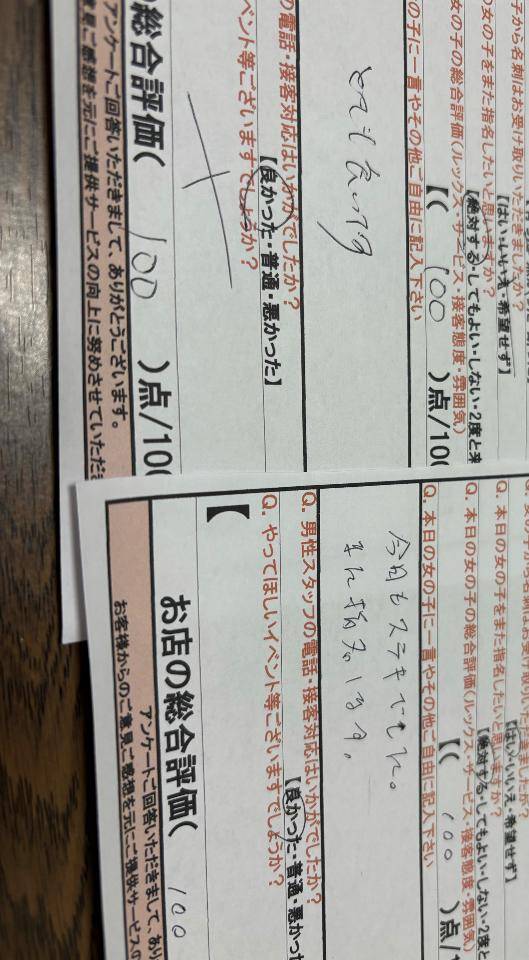 子から名刺はお受け取りいただきましたか?
【はい・いいえ・希望せず】
の女の子をまた指名したいと思いますか?
【絶対する・してもよい・しない・2度と来
女の子の総合評価(ルックス・サービス・接客態度・雰囲気)
【( 100 )点/100
の子に一言やその他ご自由に記入下さい
とても良いです
の電話・接客対応はいかがでしたか?
【良かった・普通・悪かった】
ベント等ございますでしょうか?
の総合評価( 100 )点/100
アンケートご回答いただきまして、ありがとうございます。
意見ご感想を元にご提供サービスの向上に努めさせていただき
【はい・いいえ・希望せず】
Q. 本日の女の子をまた指名したいと思いますか?
【絶対する・してもよい・しない・2度と
Q. 本日の女の子の総合評価(ルックス・サービス・接客態度・雰囲気)
【( 100 )点/1
Q. 本日の女の子に一言やその他ご自由に記入下さい
今日もステキでした。
また指名します。
Q. 男性スタッフの電話・接客対応はいかがでしたか?
【良かった・普通・悪かった
Q. やってほしいイベント等ございますでしょうか?
【
お店の総合評価( 100
アンケートご回答いただきまして、あり
お客様からのご意見ご感想を元にご提供サービスの